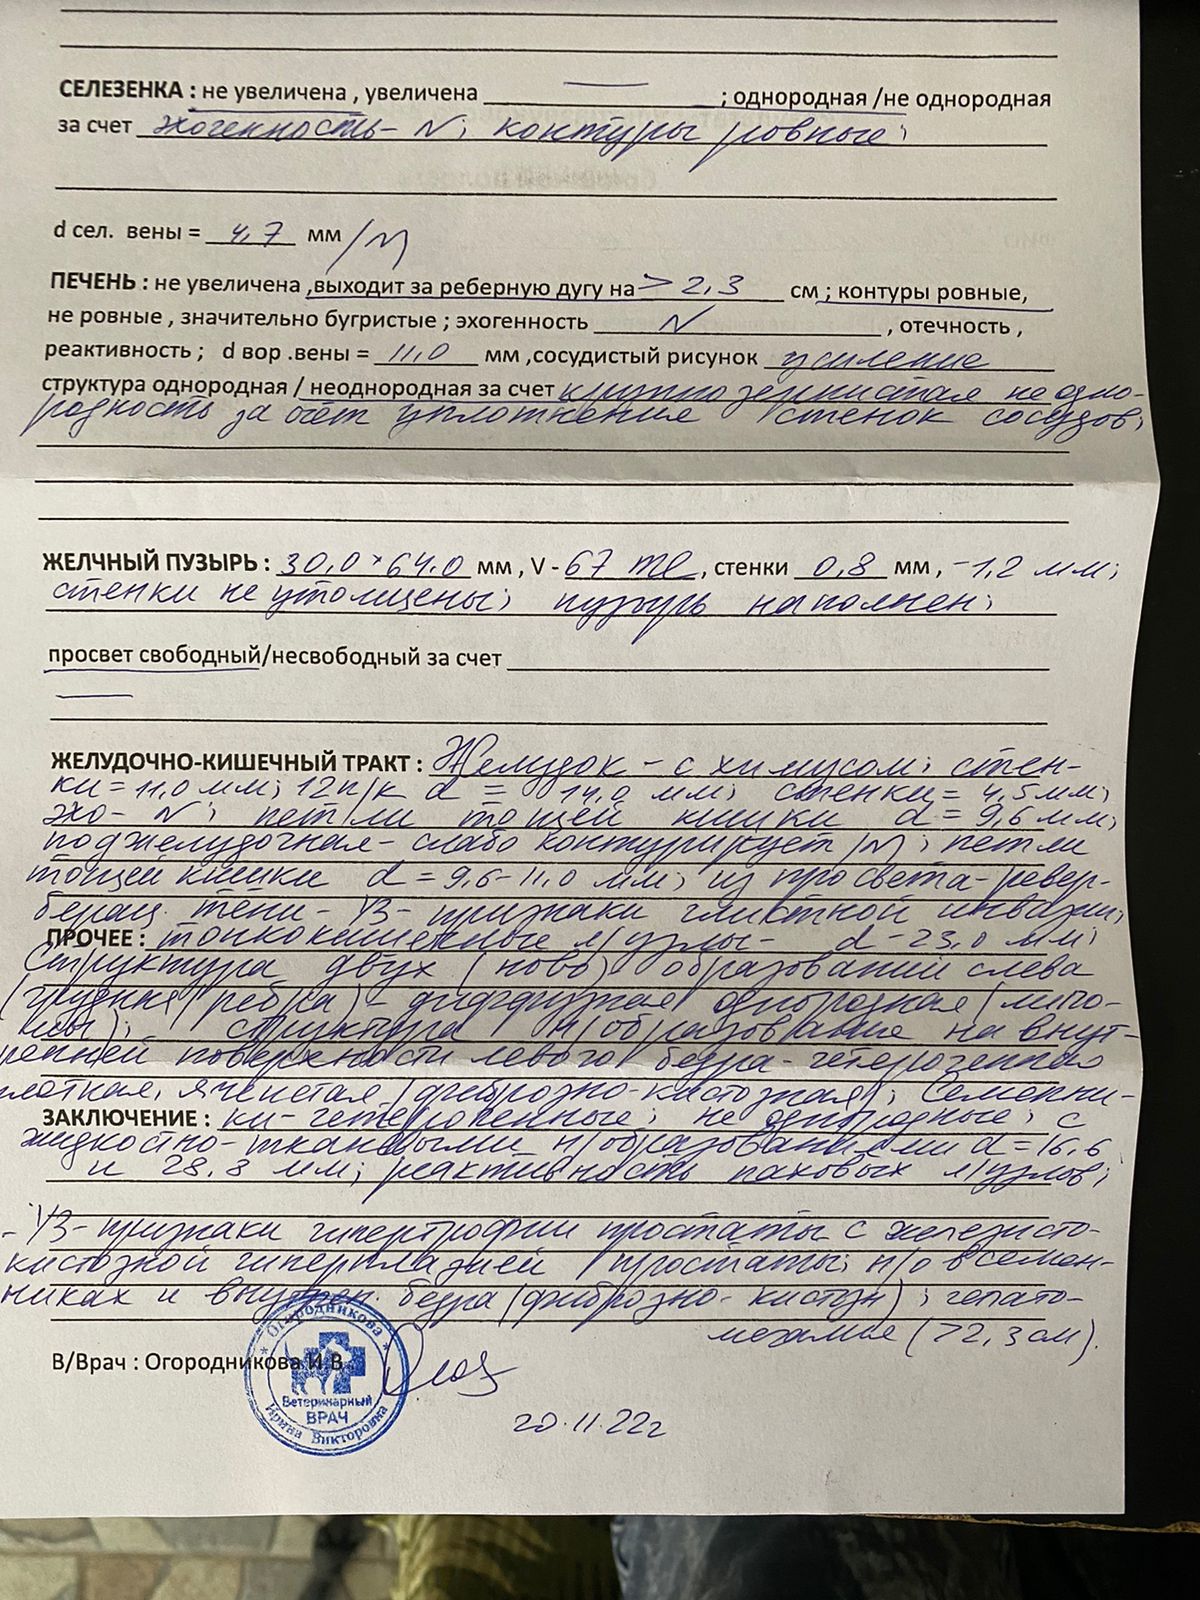 СЕЛЕЗЕНКА : не увеличена , увеличена — ; однородная /не однородная
за счет эхогенность - N; контуры ровные;
d сел. вены = 4,7 мм /N
ПЕЧЕНЬ : не увеличена ,выходит за реберную дугу на > 2,3 см ; контуры ровные,
не ровные , значительно бугристые ; эхогенность N , отечность ,
реактивность ; d вор .вены = 11,0 мм ,сосудистый рисунок усиление
структура однородная / неоднородная за счет крупнозернистая неодно-
родность за счёт уплотнения стенок сосудов;
ЖЕЛЧНЫЙ ПУЗЫРЬ : 30,0 * 64,0 мм , V - 67 ml , стенки 0,8 мм , - 1,2 мм;
стенки не утолщены; пузырь наполнен;
просвет свободный/несвободный за счет
—
ЖЕЛУДОЧНО-КИШЕЧНЫЙ ТРАКТ : Желудок - с химусом; стен-
ки = 11,0 мм; 12п/к d = 14,0 мм; стенки = 4,5 мм;
эхо - N; петли тощей кишки d = 9,6 мм;
поджелудочная - слабо контурирует /N; петли
тощей кишки d = 9,6 - 11,0 мм; из просвета - ревер-
берац. тени - УЗ - признаки глистной инвазии;
ПРОЧЕЕ : тонкокишечные л/узлы - d - 23,0 мм;
Структура двух (ново) образований слева
(грудная/ребра) - диффузная однородная (липо-
мы); структура н/образование на внут-
ренней поверхности левого бедра - гетерогенная
плотная, ячеистая (фиброзно-кистозная); Семенни-
ЗАКЛЮЧЕНИЕ : ки - гетерогенные; не однородные; с
жидкостно-тканевыми н/образованиями d = 16,6
и 28,8 мм; реактивность паховых л/узлов;
- УЗ - признаки гипертрофии простаты с железисто-
кистозной гиперплазией простаты; н/о в семен-
никах и внутрен. бедра (фиброзно - кистозн); гепато-
мегалия (>2,3 см).
В/Врач : Огородникова И.В.
* Огородникова *
Ветеринарный
ВРАЧ
Ирина Викторовна
20.11.22г